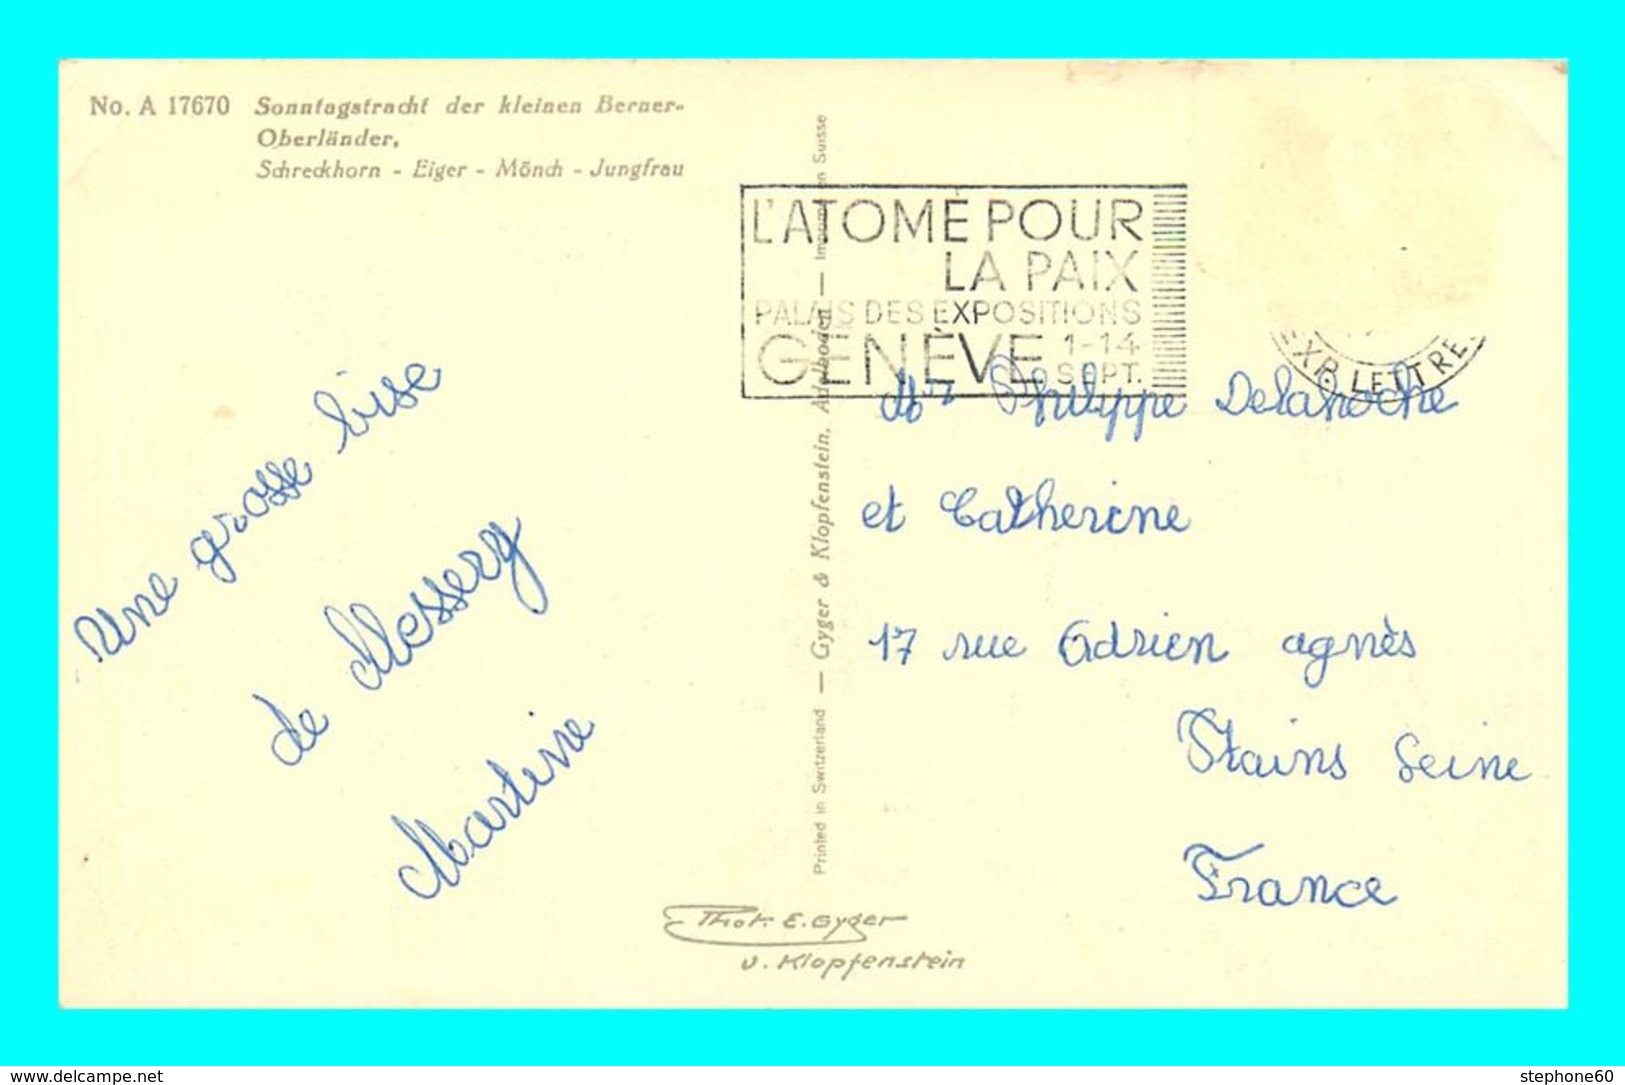 No. A 17670 Sonntagstracht der kleinen Berner-
Oberländer,
Schreckhorn - Eiger - Mönch - Jungfrau
L'ATOME POUR
LA PAIX
PALAIS DES EXPOSITIONS
GENÈVE 1-14
SEPT.
EXP. LETTRE
Une grosse bise
de Messery
Martine
Printed in Switzerland — Gyger & Klopfenstein, Adelboden — Imprimé en Suisse
Mr Philippe Delahoche
et Catherine
17 rue Adrien agnès
Stains Seine
France
Phot. E. Gyger
u. Klopfenstein
www.delcampe.net
stephone60